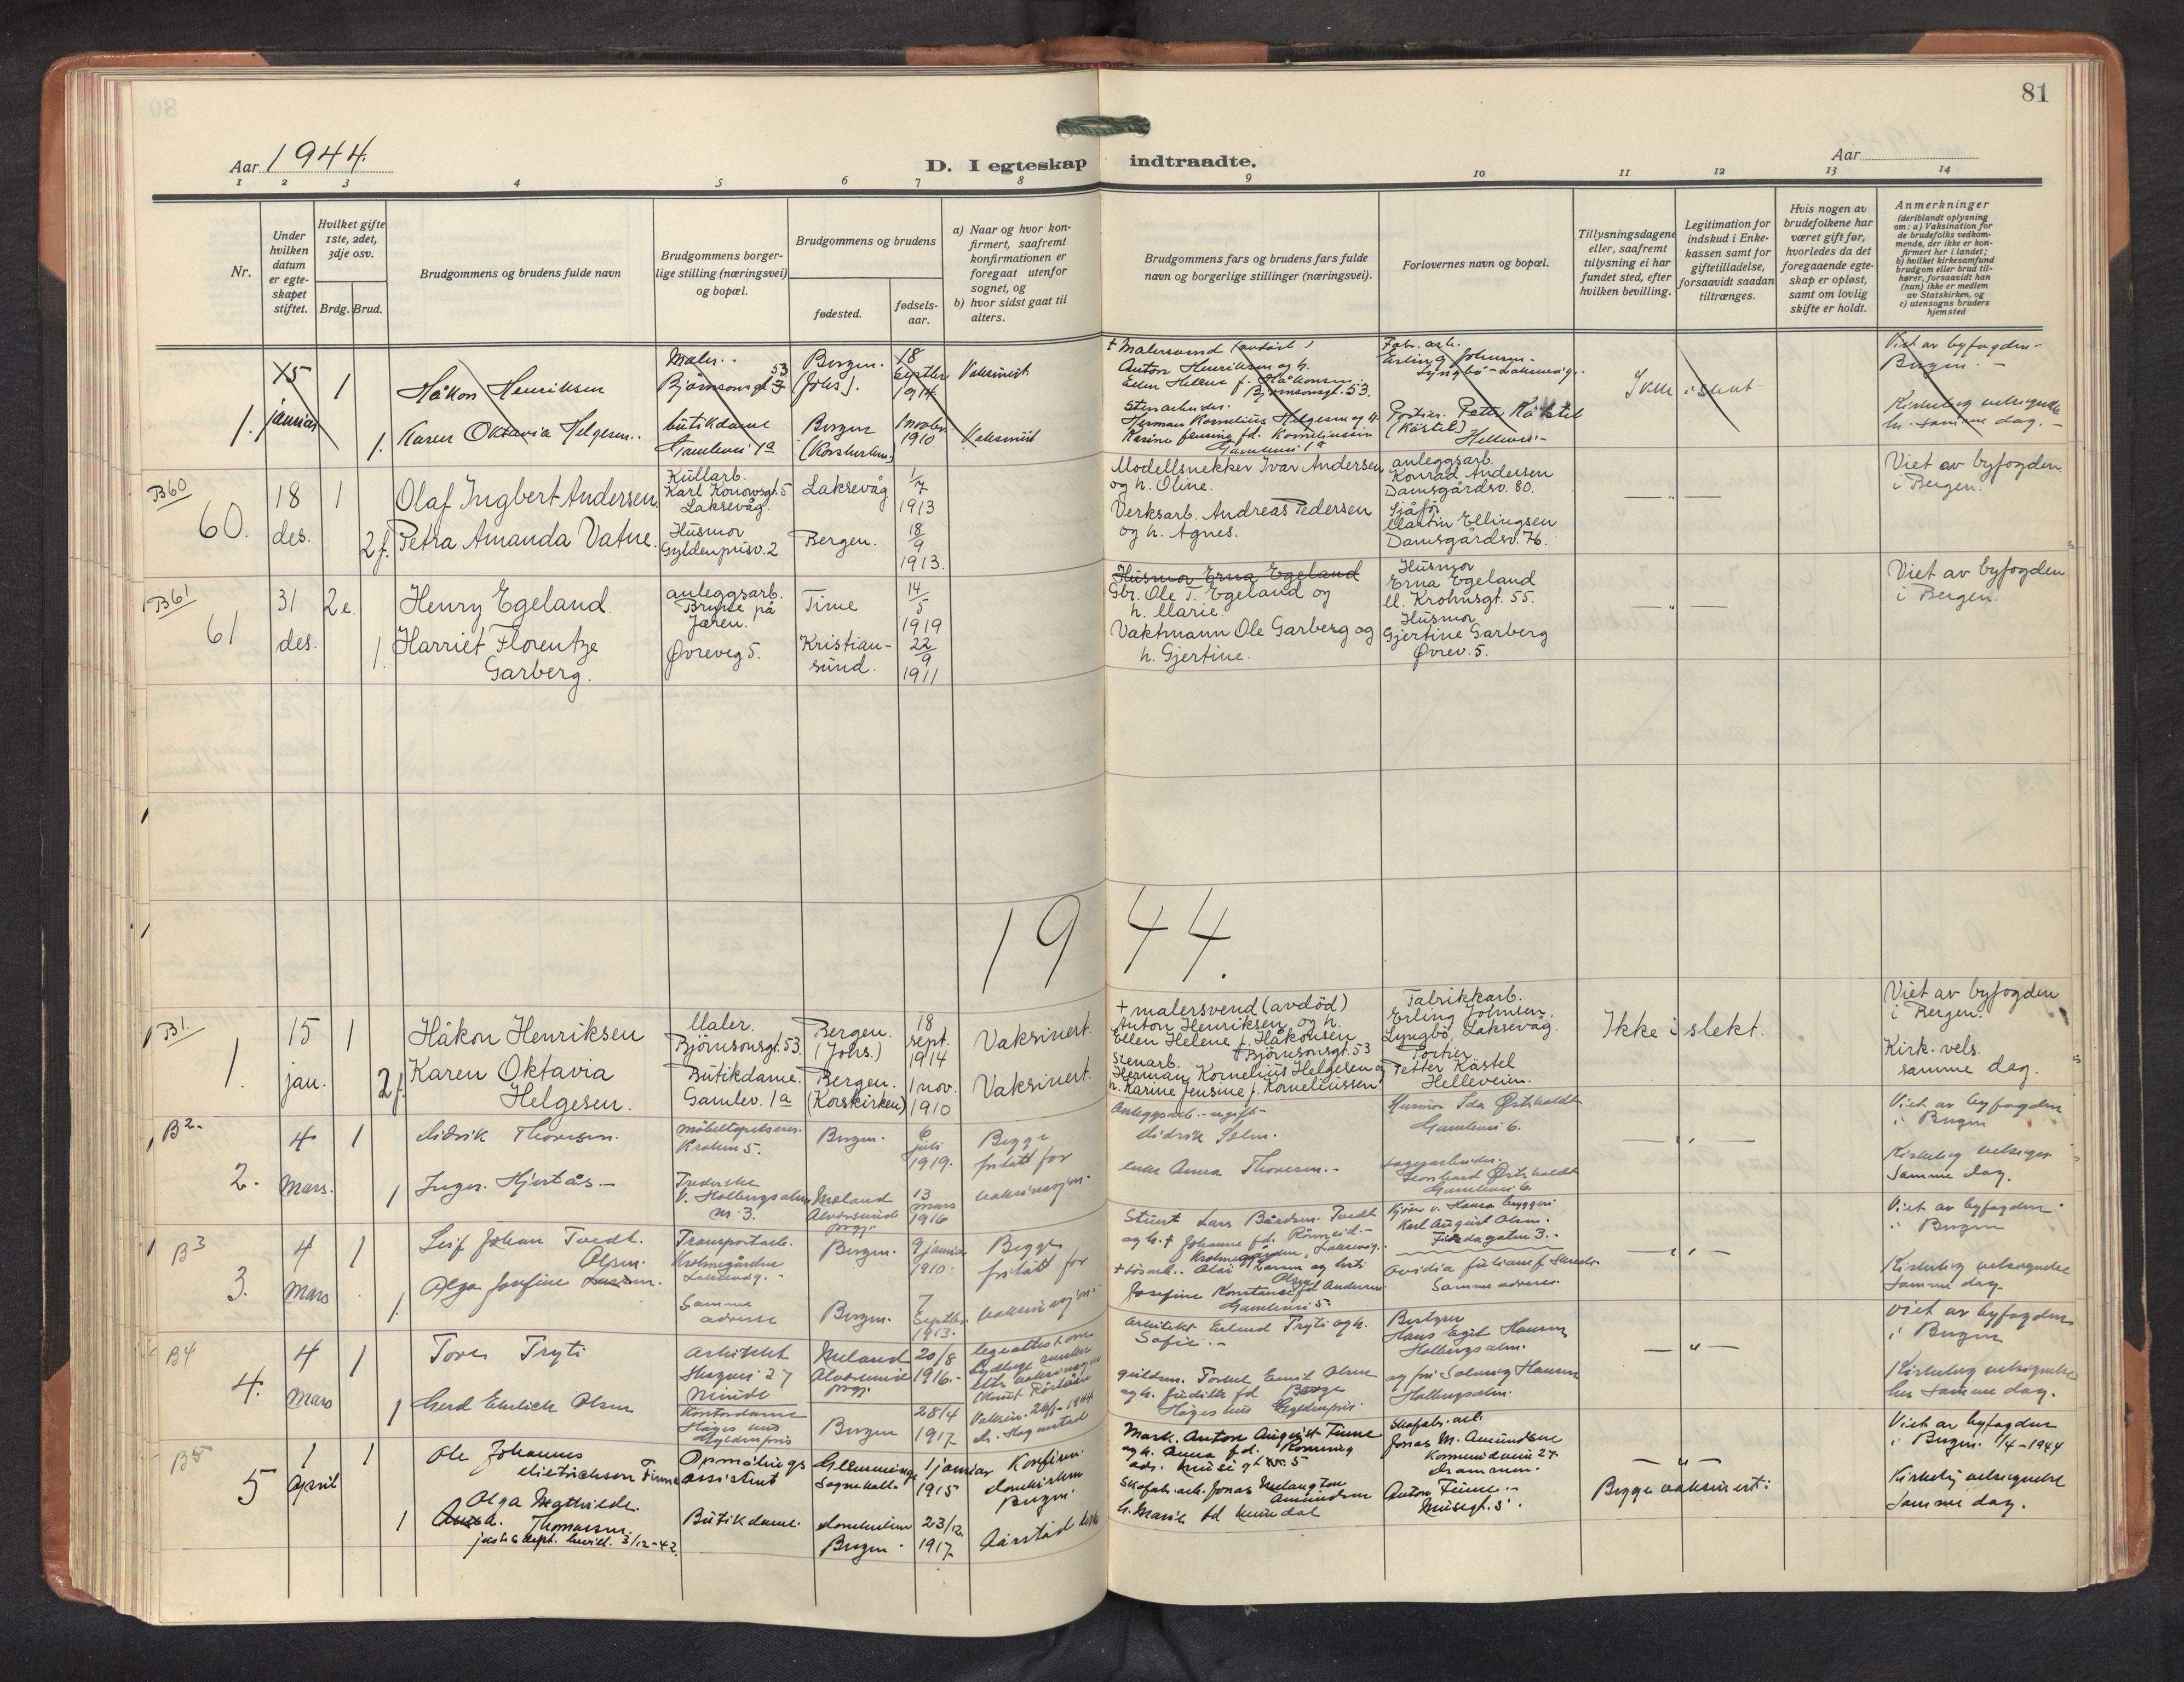 81
Aar 1944.
D. I egteskap indtraadte.
Aar
1 2 3 4 5 6 7 8 9 10 11 12 13 14
Nr.
Under hvilken datum er egte-skapet stiftet.
Hvilket gifte 1ste, 2det, 3dje osv.
Brdg. Brud.
Brudgommens og brudens fulde navn
Brudgommens borger-lige stilling (næringsvei) og bopæl.
Brudgommens og brudens
fødested.
fødsels-aar.
a) Naar og hvor kon-firmert, saafremt konfirmationen er foregaat utenfor sognet, og
b) hvor sidst gaat til alters.
Brudgommens fars og brudens fars fulde navn og borgerlige stillinger (næringsvei).
Forlovernes navn og bopæl.
Tillysningsdagene eller, saafremt tillysning ei har fundet sted, efter hvilken bevilling.
Legitimation for indskud i Enke-kassen samt for giftetilladelse, forsaavidt saadan tiltrænges.
Hvis nogen av brudefolkene har været gift før, hvorledes da det foregaaende egte-skap er opløst, samt om lovlig skifte er holdt.
Anmerkninger
(deriblandt oplysning om: a) Vaksination for de brudefolks vedkom-mende, der ikke er kon-firmert her i landet; b) hvilket kirkesamfund brudgom eller brud til-hører, forsaavidt han (hun) ikke er medlem av Statskirken, og c) utensogns bruders hjemsted
1. 15 januar 1
Håkon Henriksen
Maler.
Bjørnsonsgt. 53
Bergen.
(Johs).
18 septbr 1914
Vaksinert.
+ Malersvend (avdød)
Anton Henriksen og h.
Ellen Helene f. Håkonsen.
Bjørnsonsgt. 53.
Fabr. arb.
Erling Johnsen.
Lyngbø - Laksevåg.
Ikke i slekt
Viet av byfogden
Bergen.
1. Karen Oktavia Helgesen.
butikdame
Gamlevei 1a
Bergen
(Korskirken)
1 novbr 1910
Vaksinert
Stenarbeider.
Herman Kornelius Helgesen og h.
Karine Jensine fd. Korneliussen
Gamlevei 1a
Portier. Petter Kåstel
(Kästel)
Helleveien
Kirkelig velsignelse
samme dag.
B60
60. 18 des. 1
Olaf Ingbert Andersen
Kullarb.
Karl Konowsgt. 5
Laksevåg.
Laksevåg
1/7 1913
Modellsnekker Ivar Andersen
og h. Oline.
anleggsarb.
Konrad Andersen
Damsgårdsv. 80.
Viet av byfogden
i Bergen.
2f. Petra Amanda Vatne.
Husmor
Gyldenprisv. 2
Bergen.
18/9 1913.
Verksarb. Andreas Pedersen
og h. Agnes.
Sjåfør
Martin Ellingsen
Damsgårdsv. 76.
B61
61 31 des. 2e.
Henry Egeland
anleggsarb.
Bryne på
Jæren.
Time
14/5 1919
Husmor Erna Egeland
Gbr. Ole T. Egeland og
h. Marie.
Husmor
Erna Egeland
M. Krohnsgt. 55.
Viet av byfogden
i Bergen.
1. Harriet Florentze
Garberg.
Øvreveg 5.
Kristian-
sund.
22/9 1911
Vaktmann Ole Garberg og
h. Gjertine.
Husmor
Gjertine Garberg
Øvrev. 5.
1944.
B1.
1. 15 jan. 1
Håkon Henriksen
Maler.
Bjørnsonsgt. 53.
Bergen.
(Johs.)
18 sept. 1914
Vaksinert.
+ malersvend (avdöd)
Anton Henriksen og h.
Ellen Helene f. Håkonsen
Bjørnsonsgt. 53
Fabrikkarb.
Erling Johnsen.
Lyngbö, Laksevåg.
Ikke i slekt.
Viet av byfogden
i Bergen.
2f. Karen Oktavia
Helgesen.
Butikdame.
Gamlev. 1a
Bergen.
(Korskirken)
1 nov. 1910
Vaksinert.
Stenarb.
Herman Kornelius Helgesen og
h. Karine Jensine f. Korneliussen
Portier
Petter Kästel
Helleveien.
Kirk. vels.
samme dag.
B2
2. 4 Mars. 1
Didrik Thoresen.
Møbeltapetserer.
Bergen.
6 juli 1919.
Begge
fritatt for
vaksinasjon.
Anleggsarb. - ugift -
Husmor Ida Østvholdt
Gamlevei 6.
Viet av byfogden
i Bergen
1 Inger Hjertås.
V. Holbergsalm.
nr. 3.
Meland
Alversund
prgj.
13 mars 1916
enke Anna Thoresen.
Gamlevei 6.
Kirkelig velsignet
samme dag.
B3
3. 4 Mars 1
Leif Johan Tvedt.
Transportarb.
Laksevåg.
Bergen.
9 januar 1910.
Begge
fritatt for
vaksinasjon.
Lars Bårdsen Tvedt
og h. + Johanne
Karl August Olsen.
Viet av byfogden
i Bergen
1. Olga Josefine Larsen.
Olsen
Samme
adresse
Bergen.
7 Septbr. 1913.
Josefine Konstanse fd. Andersen
Gamlevei 5.
Samme adresse.
Kirkelig velsignelse
samme dag.
B4
4. 4 Mars 1
Tore Tryti
Arkitekt
27
Minde
Meland
Alversund
prgj.
20/8 1916.
Arkitekt Erlend Tryti og h.
Sofie.
Bestyrer
Hans Egil Hansen
Holbergsalm.
Viet av byfogden
i Bergen
1 Gerd Ehrlich Olsen
Kontordame
Gyldenpris
Bergen
28/4 1917
Emil Olsen
Gyldenpris
og fru Solveig Hansen
Holbergsalm.
Kirkelig velsignelse
her samme dag.
B5
5 1 April 1
Ole Johannes
Dietrichson Finne
Opmålings
assistent
Glemminge
1 januar 1915
Konfirm.
Domkirken
Bergen
Anton August Finne
og h. Anna f.d. Rønning
Skofabr. arb.
Jonas M. Amundsen
Drammen.
Begge vaksinert.
Viet av byfogden
i Bergen. 1/4 - 1944
1 Olga Mathilde
Thomassen
Butikdame.
Domkirken
Bergen
23/12. 1917
Årstad kirke
Skofabr. arb. Jonas
Amundsen
h. Marie fd
Anton Finne.
Kirkelig velsignelse
samme dag.